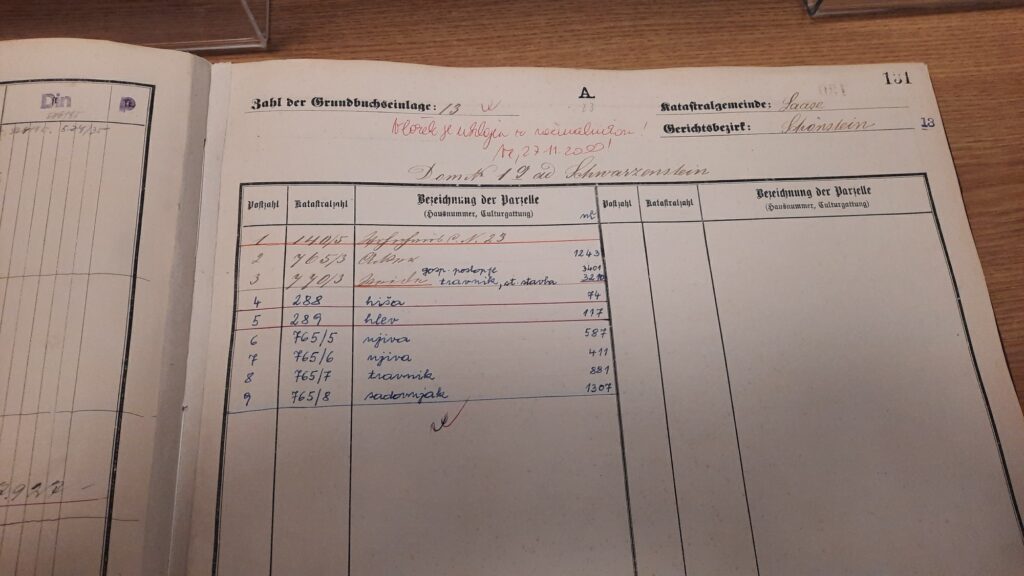 Din
131
A.
Zahl der Grundbuchseinlage: 13
Katastralgemeinde: Saase
Gerichtsbezirk: Schönstein 13
Vložek je vključen v računalnikom!
27.11.2000!
Domek 19 ad Schwarzenstein
Postzahl Katastralzahl Bezeichnung der Parzelle (Hausnummer, Culturgattung) m² Postzahl Katastralzahl Bezeichnung der Parzelle (Hausnummer, Culturgattung)
1 140/5 C. N. 23
2 765/3 Acker 1243
gosp. poslopje 3401
3 770/3 Weide travnik, st. stavba
4 288 hiša 74
5 289 hlev 117
6 765/5 njiva 587
7 765/6 njiva 411
8 765/7 travnik 881
9 765/8 sadovnjak 1307